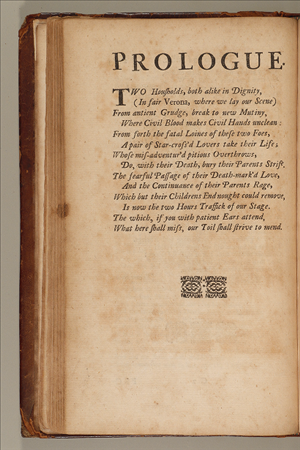 PROLOGUE.
TWO Housholds, both alike in Dignity,
(In fair Verona, where we lay our Scene)
From antient Grudge, break to new Mutiny,
Where Civil Blood makes Civil Hands unclean:
From forth the fatal Loines of those two Foes,
A pair of Star-cross'd Lovers take their Life;
Whose mis-adventur'd pitious Overthrows,
Do, with their Death, bury their Parents Strife.
The fearful Passage of their Death-mark'd Love,
And the Continuance of their Parents Rage,
Which but their Childrens End nought could remove,
Is now the two Hours Traffick of our Stage.
The which, if you with patient Ears attend,
What here shall miss, our Toil shall strive to mend.